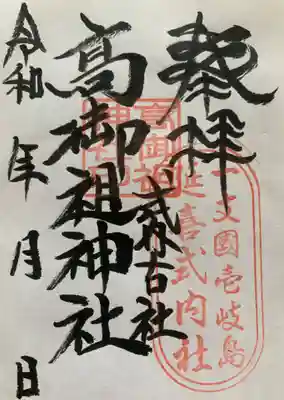 奉拝
一支國壱岐島
延喜式内社
高御祖神社
式外古社
高御祖神社
令和 年 月 日